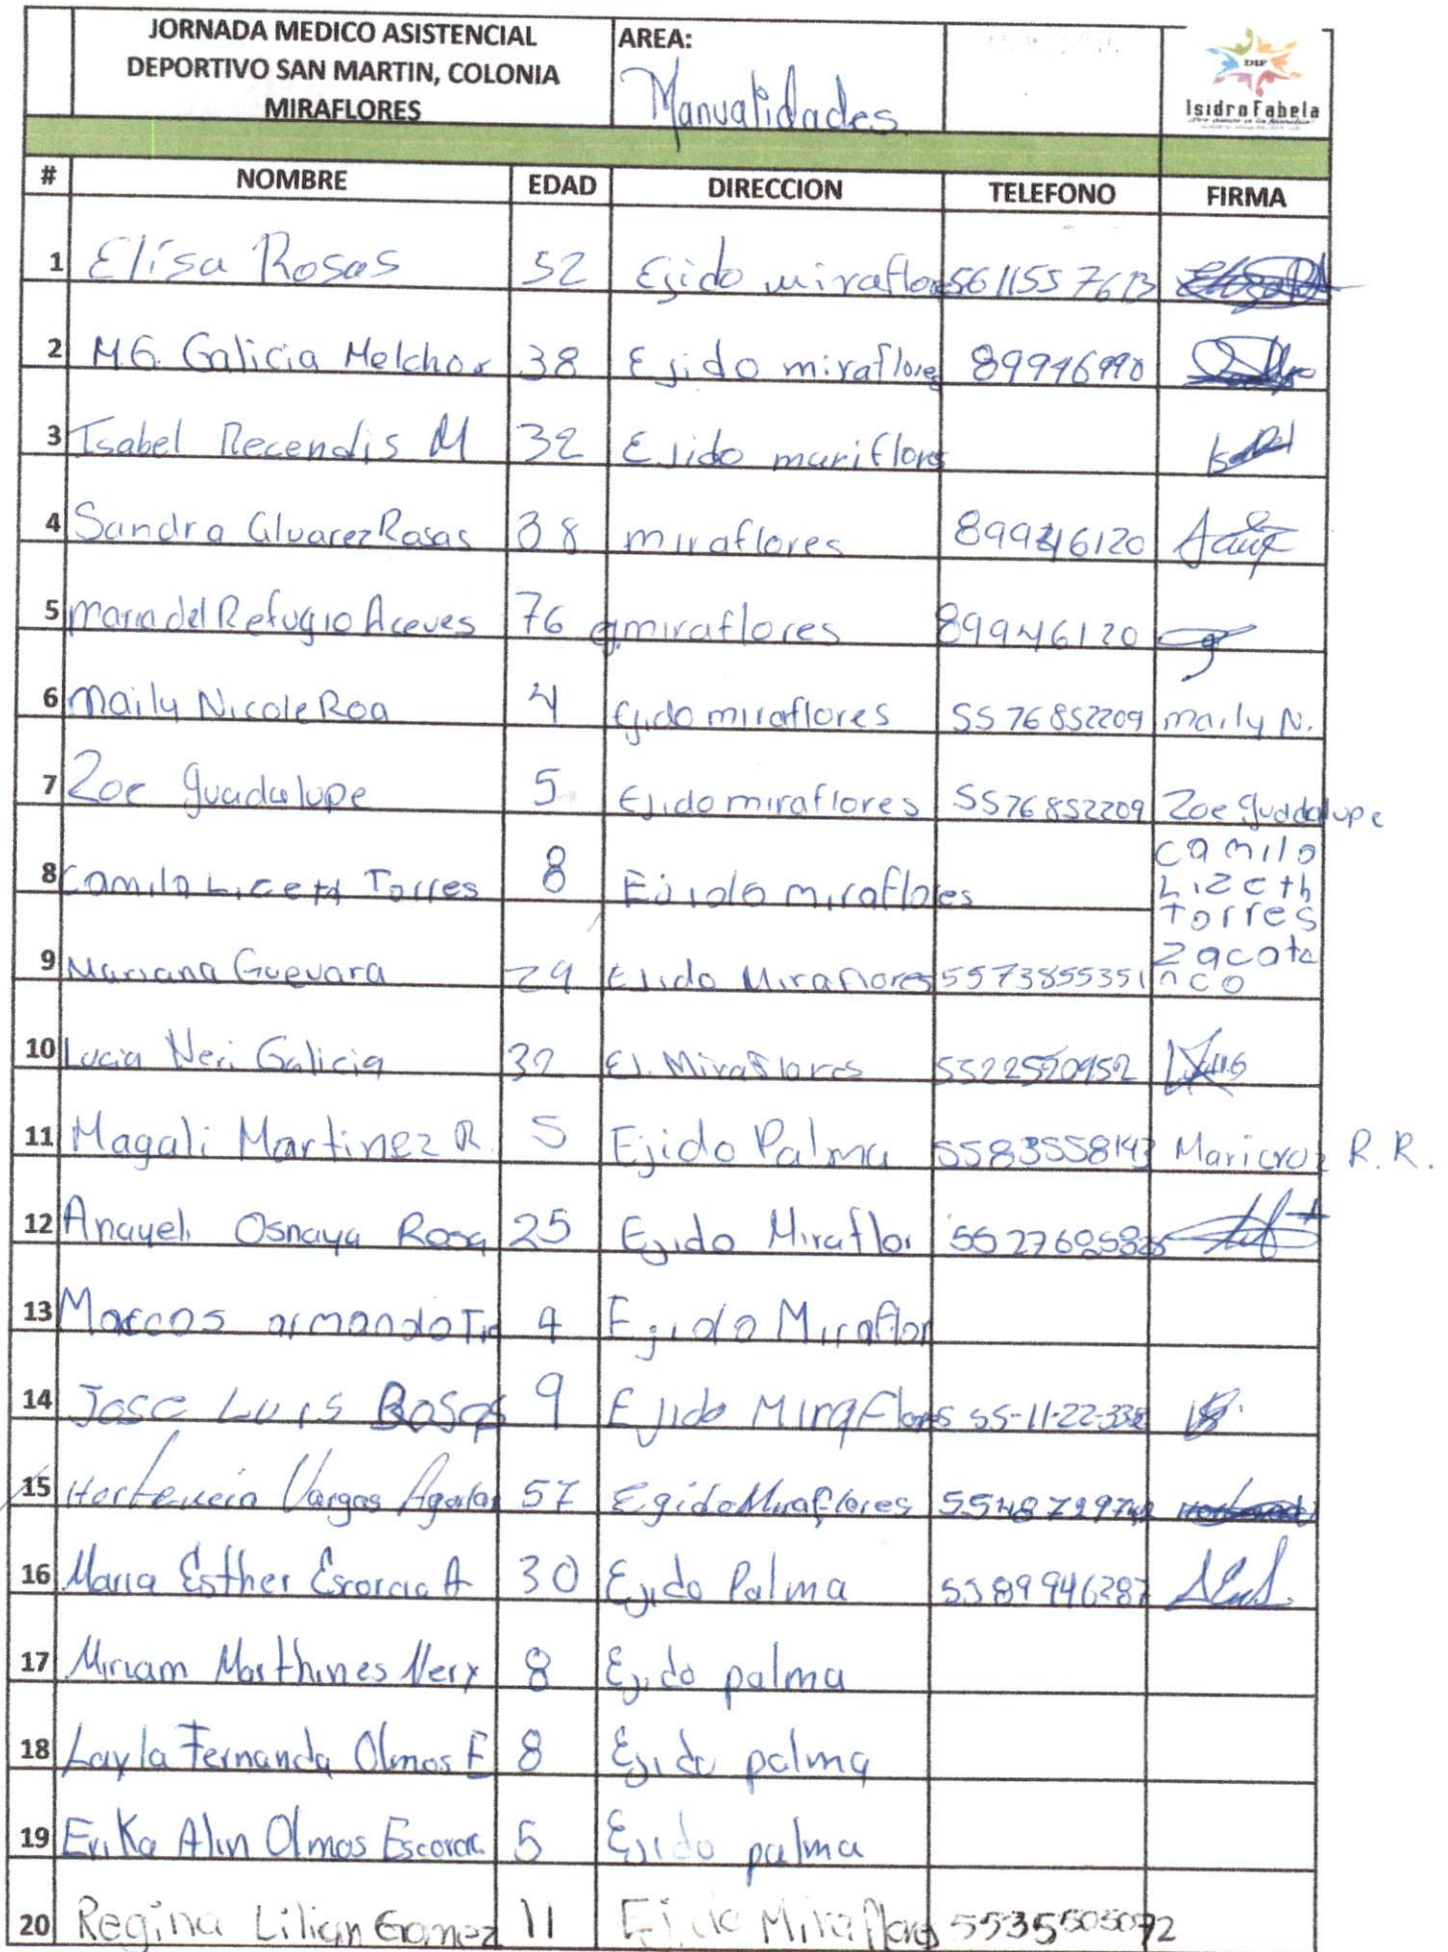 JORNADA MEDICO ASISTENCIAL
DEPORTIVO SAN MARTIN, COLONIA
MIRAFLORES
AREA:
Manualidades
DIF
Isidro Fabela
# NOMBRE EDAD DIRECCION TELEFONO FIRMA
1 Elisa Rosas 52 Ejido miraflores 5611557613
2 M.G. Galicia Melchor 38 Ejido miraflores 89946990
3 Isabel Recendis M 32 Ejido mariflores
4 Sandra Alvarez Rosas 38 miraflores 89946120
5 Maria del Refugio Aceves 76 miraflores 89946120
6 Maily Nicole Roa 4 Ejido miraflores 5576852209 maily N.
7 Zoe guadalupe 5 Ejido miraflores 5576852209 Zoe guadalupe
8 Camila Liceth Torres 8 Ejido miraflores Camila Lizeth Torres Zacatenco
9 Mariana Guevara 29 Ejido Miraflores 5573855351
10 Lucia Neri Galicia 32 EJ. Miraflores 5522520952
11 Magali Martinez R. 5 Ejido Palma 5583558143 Maricruz R. R.
12 Anayeli Osnaya Rosa 25 Ejido Miraflor
13 Marcos armando 4 Egido Miraflor
14 Jose Luis Rosas 9 Ejido Miraflores 55-11-22-338
15 Hortencia Vargas Aguilar 57 Egido Miraflores
16 Maria Esther Escorcia A 30 Ejido Palma 5589946287
17 Miriam Marthines Nery 8 Ejido palma
18 Layla Fernanda Olmos E 8 Ejido palma
19 Erika Alin Olmos 5 Ejido palma
20 Regina Lilian Gomez 11 Ejido Miraflores 5535505072